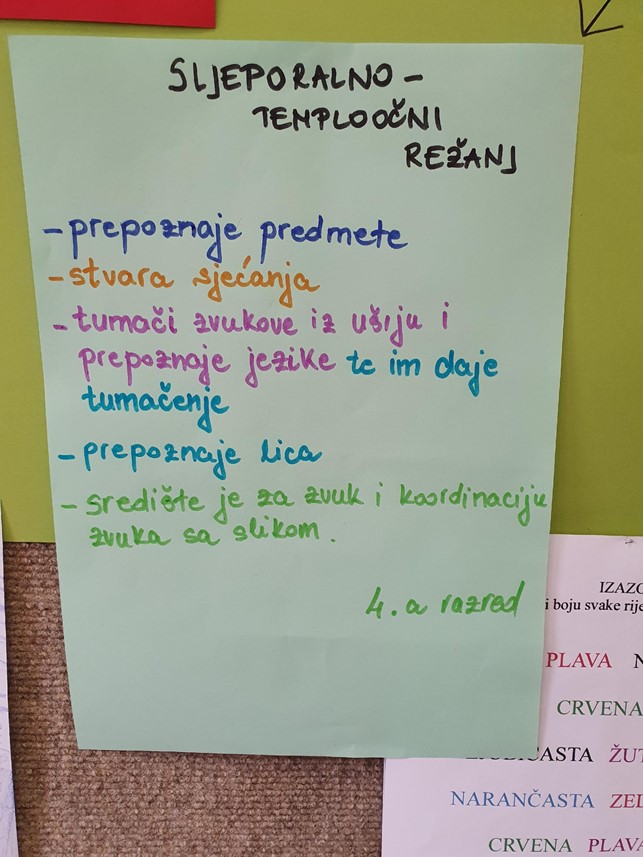 SLJEPORALNO -
TEMPLOOČNI
REŽANJ
- prepoznaje predmete
- stvara sjećanja
- tumači zvukove iz ušiju i
prepoznaje jezike te im daje
tumačenje
- prepoznaje lica
- središte je za zvuk i koordinaciju
zvuka sa slikom.
4. a razred
IZAZO
i boju svake rije
PLAVA N
CRVENA
LJUBIČASTA ŽUT
NARANČASTA ZEL
CRVENA PLAVA